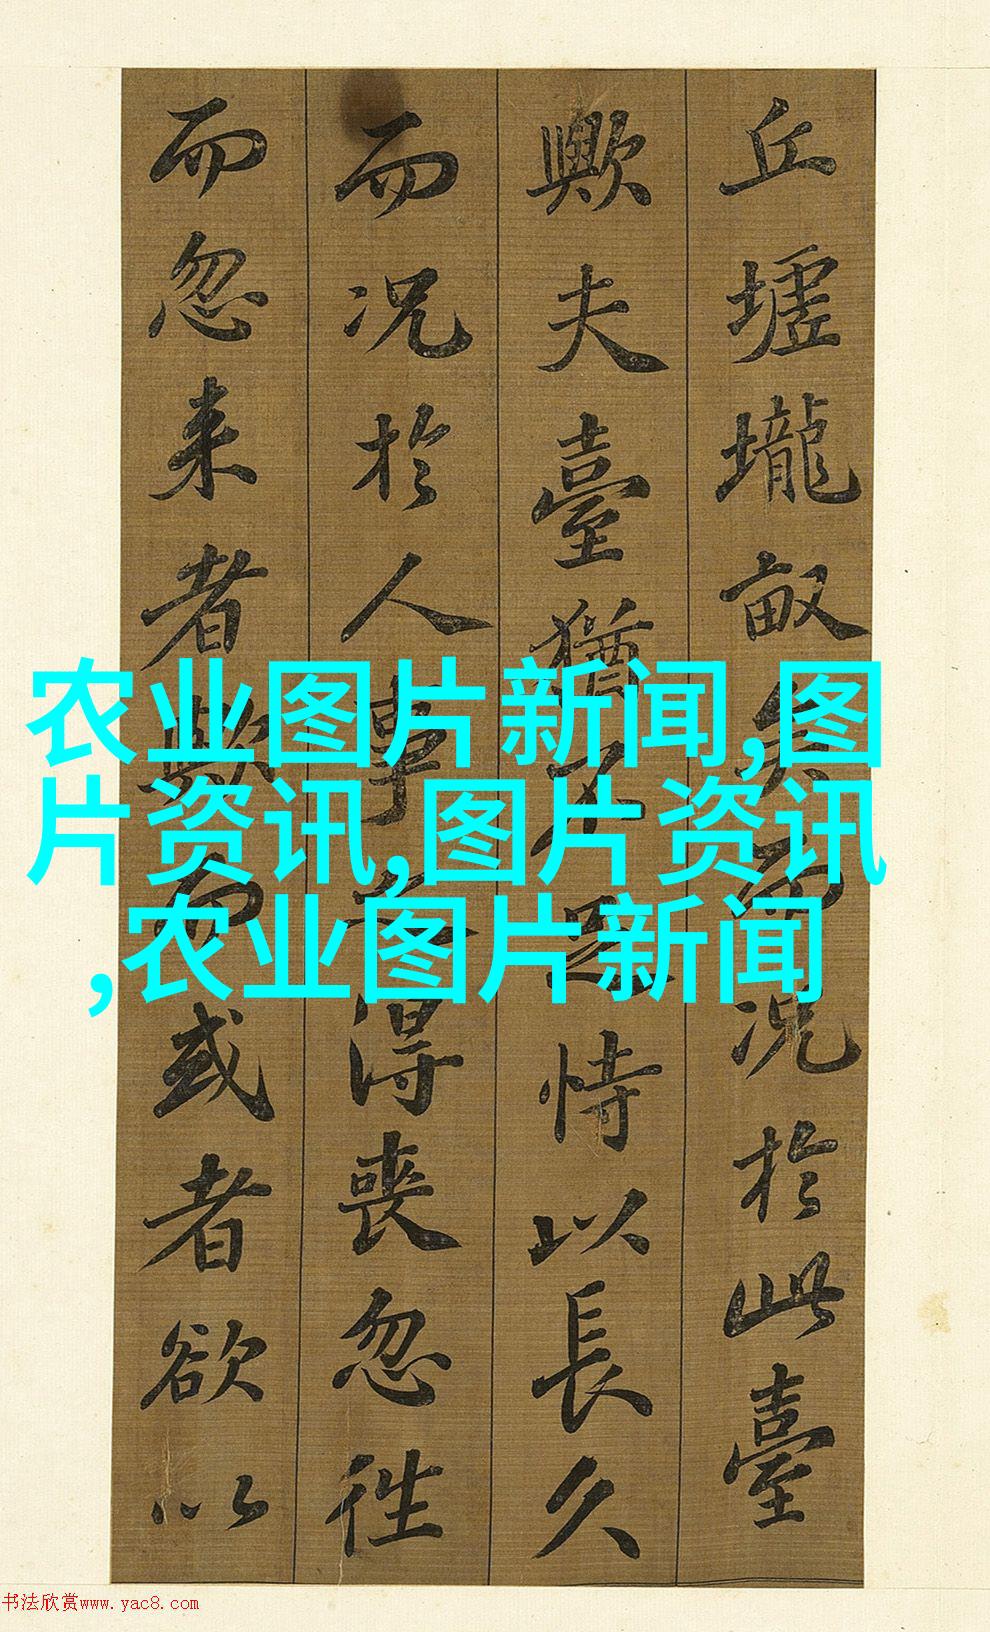 丘墟壠畝矣而况於此臺
歟夫臺猶不足恃以長久
而况於人事之得喪忽往
而忽来者歟而或者欲以
农业图片新闻,图
片资讯,图片资讯
,农业图片新闻
书法欣赏www.yac8.com